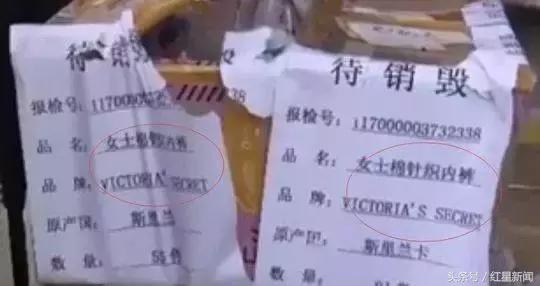 待销毁
报检号:
品 名: 女士棉针织内裤
品 牌: VICTORIA'S SECRET
原产国: 斯里兰
数 量:
待销毁
报检号: i17000003732338
品 名: 女士棉针织内裤
品 牌: VICTORIA'S SECRET
原产国: 斯里兰卡
数 量:
头条号 / 红星新闻